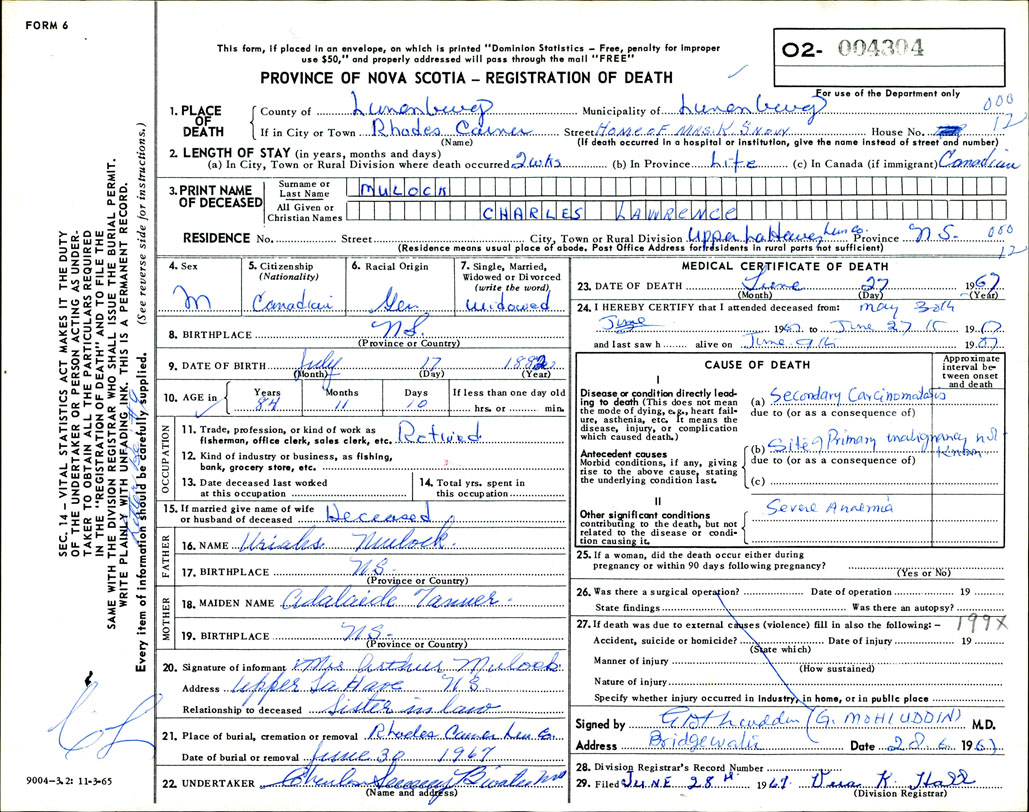 FORM 6
This form, if placed in an envelope, on which is printed "Dominion Statistics – Free, penalty for improper
use $50," and properly addressed will pass through the mail "FREE"
O2- 004304
PROVINCE OF NOVA SCOTIA – REGISTRATION OF DEATH
For use of the Department only
1. PLACE OF DEATH
County of Lunenburg Municipality of Lunenburg 000
If in City or Town Rhodes Corner Street Home of Mrs. K. Snow House No. 12
(Name) (If death occurred in a hospital or institution, give the name instead of street and number)
2. LENGTH OF STAY (in years, months and days)
(a) In City, Town or Rural Division where death occurred 2 wks (b) In Province Life (c) In Canada (if immigrant) Canadian
3. PRINT NAME OF DECEASED
Surname or Last Name MULOCK
All Given or Christian Names CHARLES LAWRENCE
RESIDENCE No. Street City, Town or Rural Division Upper LaHave Lun Co. Province N.S. 000
(Residence means usual place of abode. Post Office Address for residents in rural parts not sufficient) 12
4. Sex M
5. Citizenship (Nationality) Canadian
6. Racial Origin Ger
7. Single, Married, Widowed or Divorced (write the word) widowed
8. BIRTHPLACE N.S.
(Province or Country)
9. DATE OF BIRTH July 17 1882
(Month) (Day) (Year)
10. AGE in Years 84 Months 11 Days 10 If less than one day old hrs. or min.
OCCUPATION
11. Trade, profession, or kind of work as fisherman, office clerk, sales clerk, etc. Retired
12. Kind of industry or business, as fishing, bank, grocery store, etc.
13. Date deceased last worked at this occupation
14. Total yrs. spent in this occupation
15. If married give name of wife or husband of deceased Deceased
FATHER
16. NAME Uriahs Mulock
17. BIRTHPLACE N.S.
(Province or Country)
MOTHER
18. MAIDEN NAME Adalaide Tanner
19. BIRTHPLACE N.S.
(Province or Country)
20. Signature of informant Mrs Arthur Mulock
Address Upper LaHave N.S.
Relationship to deceased Sister in law
21. Place of burial, cremation or removal Rhodes Corner Lun Co.
Date of burial or removal June 30 1967
22. UNDERTAKER
(Name and address)
MEDICAL CERTIFICATE OF DEATH
23. DATE OF DEATH June 27 1967
(Month) (Day) (Year)
24. I HEREBY CERTIFY that I attended deceased from: may 30th
June 1967 to June 27th 1967
and last saw h alive on June 9th 1967
CAUSE OF DEATH
Approximate interval between onset and death
I
Disease or condition directly leading to death (This does not mean the mode of dying, e.g., heart failure, asthenia, etc. It means the disease, injury, or complication which caused death.)
(a) Secondary Carcinomatosis
due to (or as a consequence of)
Antecedent causes
Morbid conditions, if any, giving rise to the above cause, stating the underlying condition last.
(b) Site of Primary malignancy not known
due to (or as a consequence of)
(c)
II
Other significant conditions contributing to the death, but not related to the disease or condition causing it.
Severe Anaemia
25. If a woman, did the death occur either during pregnancy or within 90 days following pregnancy?
(Yes or No)
26. Was there a surgical operation? Date of operation 19
State findings Was there an autopsy?
27. If death was due to external causes (violence) fill in also the following: – 199X
Accident, suicide or homicide? Date of injury 19
(State which)
Manner of injury
(How sustained)
Nature of injury
Specify whether injury occurred in Industry, in home, or in public place
Signed by (G. MOHIUDDIN) M.D.
Address Bridgewater Date 28.6. 1967
28. Division Registrar's Record Number
29. Filed JUNE 28th 1967 Vera K. Hall
(Division Registrar)
SEC. 14 – VITAL STATISTICS ACT MAKES IT THE DUTY
OF THE UNDERTAKER OR PERSON ACTING AS UNDER-
TAKER TO OBTAIN ALL THE PARTICULARS REQUIRED
IN THE "REGISTRATION OF DEATH" AND TO FILE THE
SAME WITH THE DIVISION REGISTRAR WHO SHALL ISSUE THE BURIAL PERMIT.
WRITE PLAINLY WITH UNFADING INK. THIS IS A PERMANENT RECORD.
Every item of information should be carefully supplied. (See reverse side for instructions.)
9004-3.2: 11-3-65